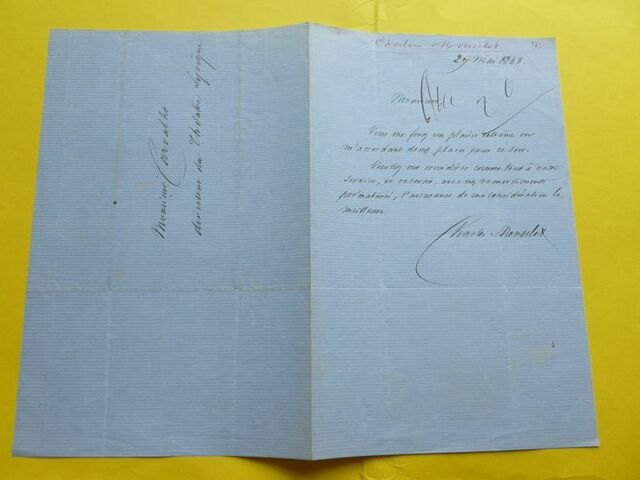 Monsieur Carvalho
directeur du Théâtre Lyrique
Charles Monselet
27 Mai 1863.
Monsieur
Vous me ferez un plaisir extrême en
m'accordant deux places pour ce soir.
Veuillez me considérer comme tout à votre
service, et recevoir, avec mes remerciments
prématurés, l'assurance de ma considération la
meilleure
Charles Monselet